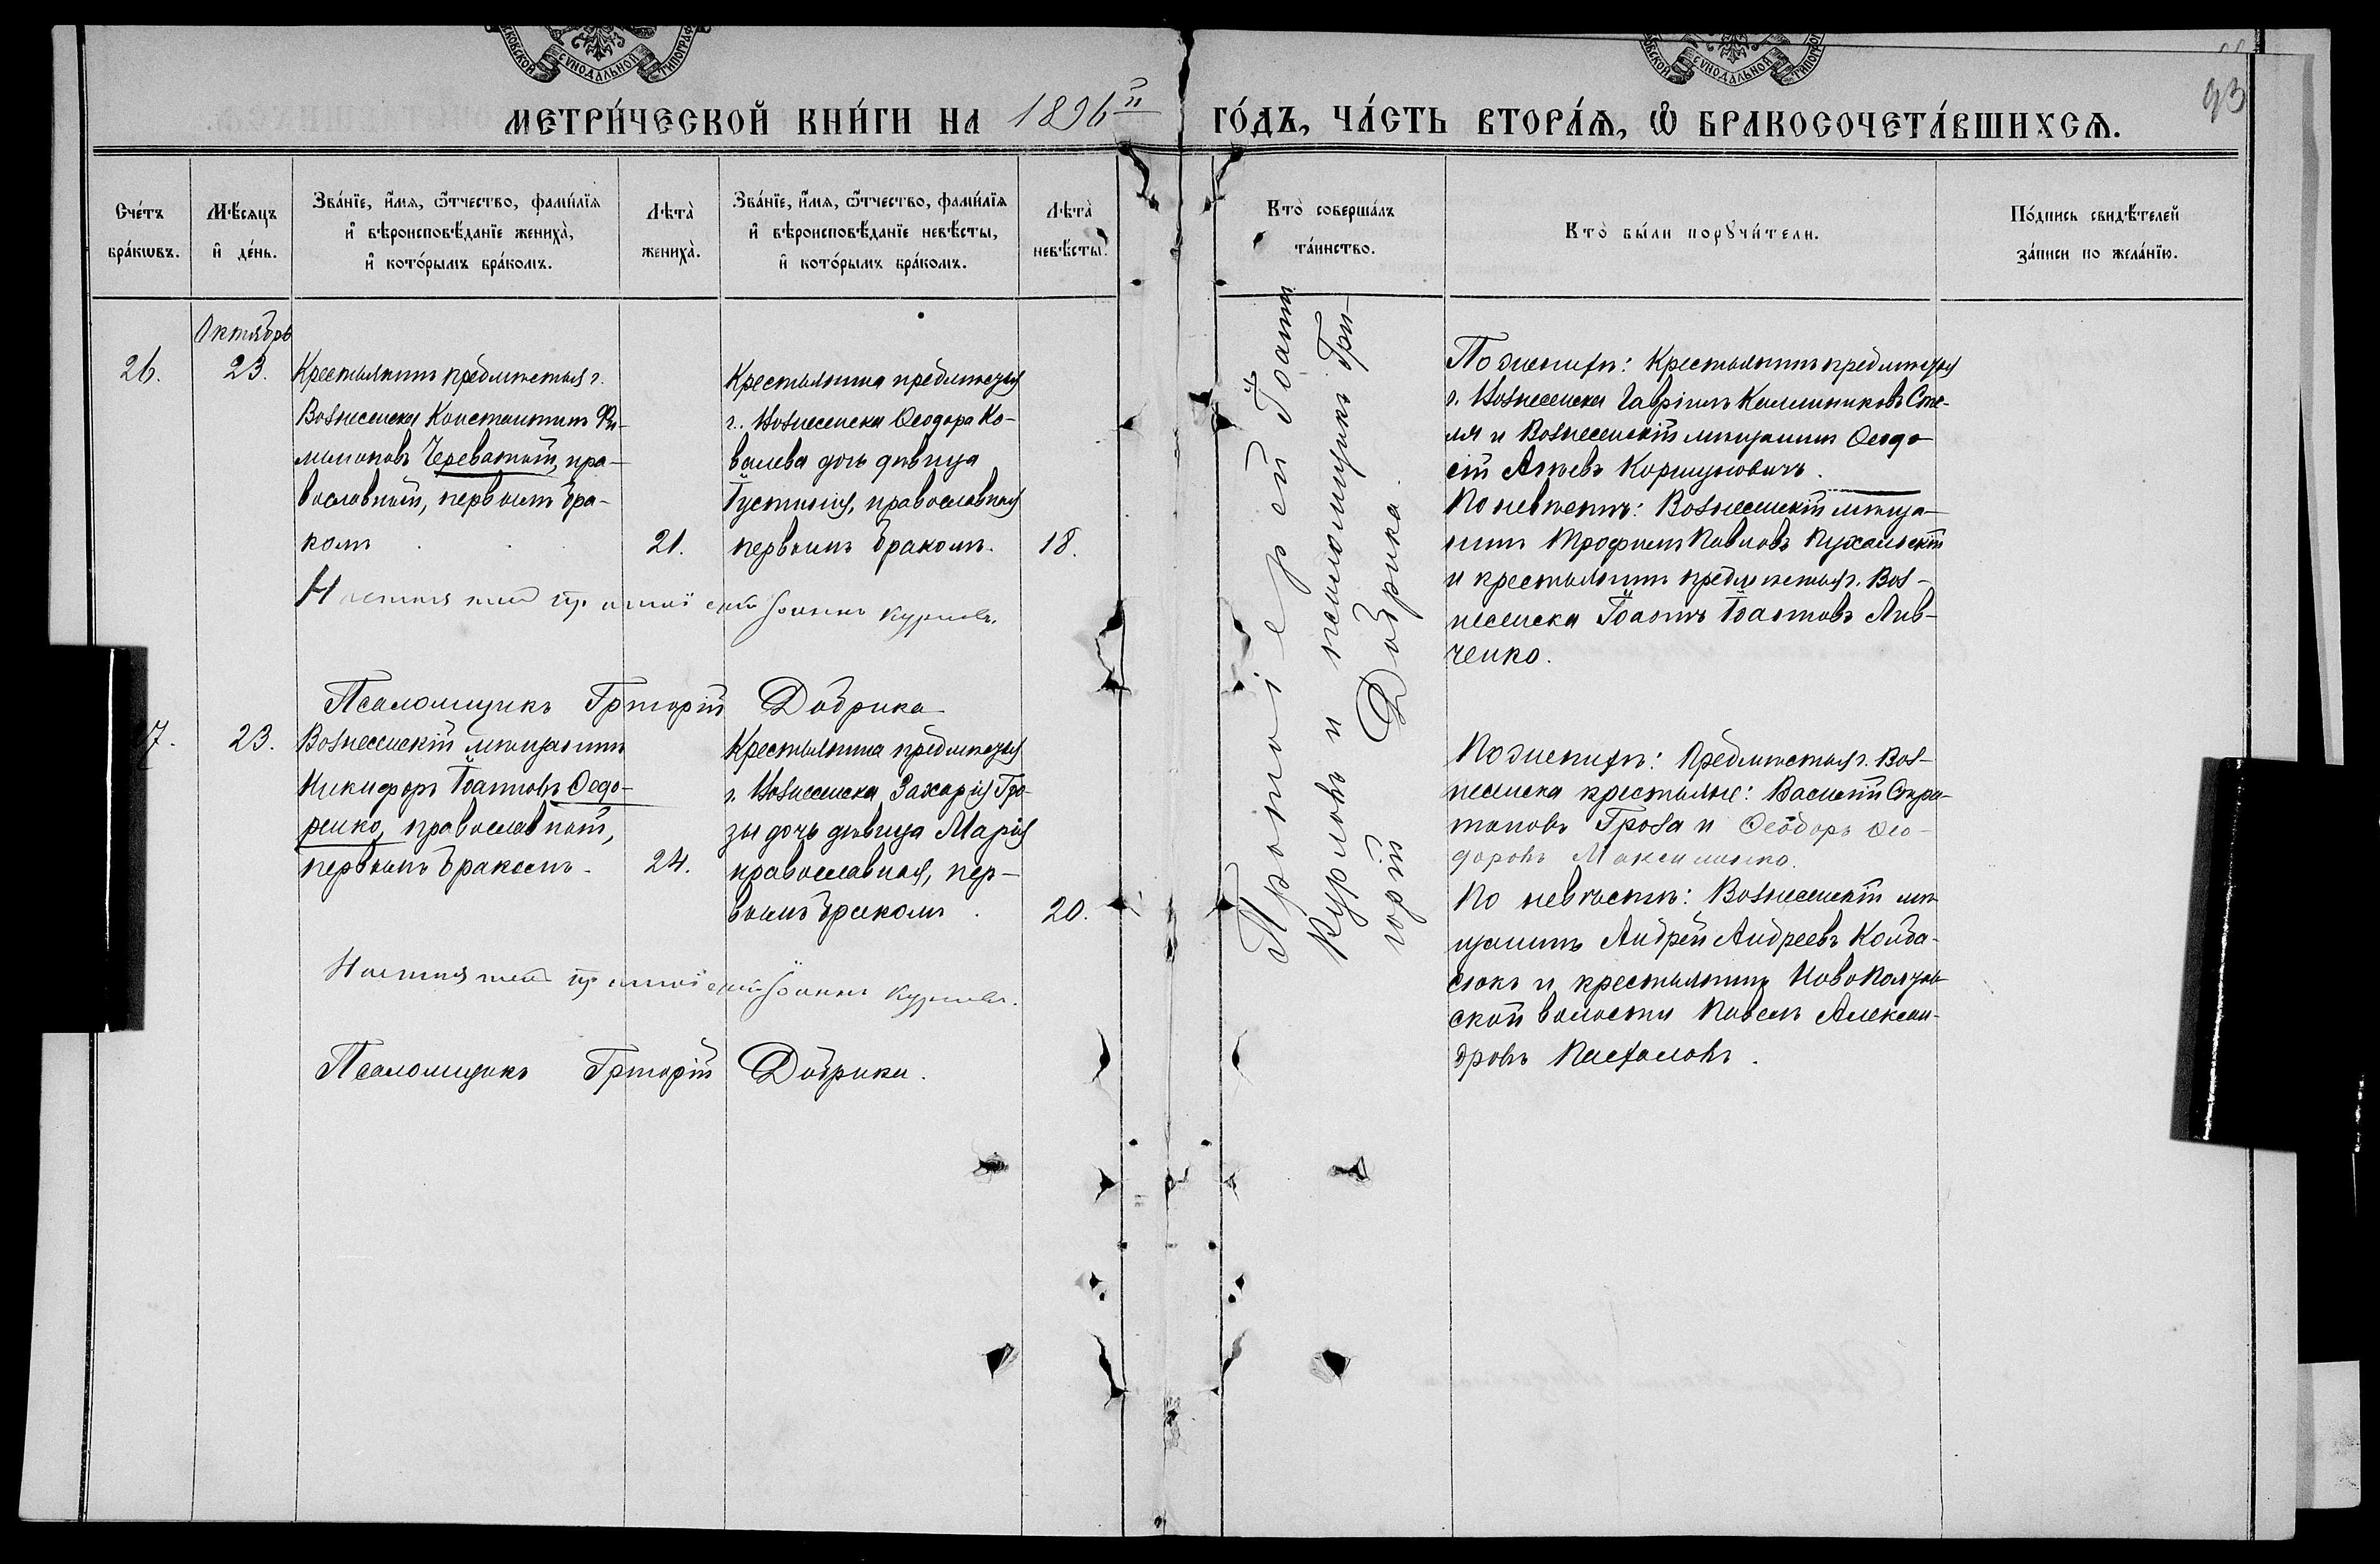 МОСКОВСКОЙ СѴНОДАЛЬНОЙ ТИПОГРАФ
МОСКОВСКОЙ СѴНОДАЛЬНОЙ ТИПОГР
93
МЕТРИ́ЧЕСКОЙ КНИ́ГИ НА 1896й ГО́ДЪ, ЧА́СТЬ ВТОРА́Ѧ, Ѽ БРАКОСОЧЕТА́ВШИХСѦ.
Сче́тъ бра́кѡвъ.
Мѣ́сяцъ и҆ де́нь.
Зва́нїе, и҆́мя, ѻ҆́тчество, фами́лїя и҆ вѣроисповѣ́данїе жениха̀, и҆ кото́рымъ бра́комъ.
Лѣта̀ жениха̀.
Зва́нїе, и҆́мя, ѻ҆́тчество, фами́лїя и҆ вѣроисповѣ́данїе невѣ́сты, и҆ кото́рымъ бра́комъ.
Лѣта̀ невѣ́сты.
Кто̀ соверша́лъ та́инство.
Кто̀ бы́ли порꙋчи́тели.
По́дпись свидѣ́телей за́писи по жела́нїю.
Октябрь
26.
23.
Крестьянинъ предмѣстья г.
Вознесенска Константинъ Фи-
лимоновъ Череватый, пра-
вославный, первымъ бра-
комъ
21.
Крестьянина предмѣстья
г. Вознесенска Ѳеодора Ко-
валева дочь дѣвица
Іустинія, православная
первымъ бракомъ.
18.
Протоіерей Іоаннъ
Курловъ и псаломщикъ Гри-
горій Добрика.
По женихѣ: Крестьянинъ предмѣстья
г. Вознесенска Гавріилъ Калиниковъ Сопе-
ля и Вознесенскій мѣщанинъ Ѳеодо-
сій Агѣевъ Коршуновичъ.
По невѣстѣ: Вознесенскій мѣща-
нинъ Трофимъ Павловъ Пухальскій
и крестьянинъ предмѣстья г. Воз-
несенска Іоаннъ Іоанновъ Лив-
ченко.
Настоятель протоіерей Іоаннъ Курловъ.
Псаломщикъ Григорій Добрика
7.
23.
Вознесенскій мѣщанинъ
Никифоръ Іоанновъ Ѳедо-
ренко, православный,
первымъ бракомъ.
24.
Крестьянина предмѣстья
г. Вознесенска Захарія Гро-
зы дочь дѣвица Марія
православная, пер-
вымъ бракомъ.
20.
По женихѣ: Предмѣстья г. Воз-
несенска крестьяне: Василій Стра-
тоновъ Гроза и Ѳеодоръ Ѳео-
доровъ Максименко.
По невѣстѣ: Вознесенскій мѣ-
щанинъ Андрей Андреевъ Колба-
сюкъ и крестьянинъ
ской волости Павелъ Алексан-
дровъ Пасхаловъ.
Настоятель протоіерей Іоаннъ Курловъ.
Псаломщикъ Григорій Добрика.